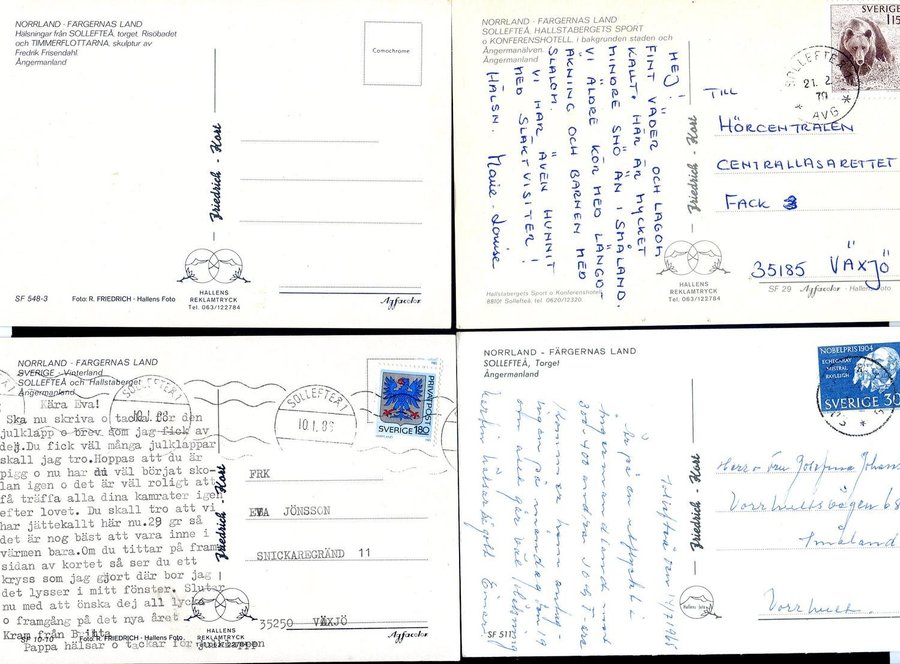 NORRLAND - FÄRGERNAS LAND
Hälsningar från SOLLEFTEÅ, torget, Risöbadet
och TIMMERFLOTTARNA, skulptur av
Fredrik Frisendahl.
Ångermanland
Comochrome
Friedrich - Kort
HALLENS
REKLAMTRYCK
Tel. 063/122784
SF 548-3
Foto: R. FRIEDRICH - Hallens Foto
Agfacolor
NORRLAND - FÄRGERNAS LAND
SOLLEFTEÅ, HALLSTABERGETS SPORT
o KONFERENSHOTELL, i bakgrunden staden och
Ångermanälven.
Ångermanland
HEJ!
FINT VÄDER OCH LAGOM
KALLT. HÄR ÄR MYCKET
MINDRE SNÖ ÄN I SMÅLAND.
VI ÄLDRE KÖR MED LÄNGD-
ÅKNING OCH BARNEN MED
SLALOM.
VI HAR ÄVEN HUNNIT
MED SLÄKTVISITER!
HÄLSN. Marie-Louise
SVERIGE
115
SOLLEFTEÅ 1
21. 2
79
* AVG *
TILL
HÖRCENTRALEN
CENTRALLASARETTET
FACK
35185 VÄXJÖ
Friedrich - Kort
HALLENS
REKLAMTRYCK
Tel. 063/122784
Hallstabergets Sport o Konferenshotell
88101 Sollefteå, tel 0620/12320.
SF 29
Agfacolor - Hallens Foto
NORRLAND - FÄRGERNAS LAND
SVERIGE - Vinterland
SOLLEFTEÅ och Hallstaberget
Ångermanland
SOLLEFTEÅ 1
10.1.86
SOLLEFTEÅ 1
10.1.86
PRIVATPOST
SVERIGE 180
Kära Eva!
Ska nu skriva o tacka för den
julklapp o brev som jag fick av
dej.Du fick väl många julklappar
skall jag tro.Hoppas att du är
pigg o nu har du väl börjat sko-
lan igen o det är väl roligt att
få träffa alla dina kamrater igen
efter lovet. Du skall tro att vi
har jättekallt här nu.29 gr så
det är nog bäst att vara inne i
värmen bara.Om du tittar på fram
sidan av kortet så ser du ett
kryss som jag gjort där bor jag
det lyser i mitt fönster. Slutar
nu med att önska dej all lycka
o framgång på det nya året
Kram från Britta
Pappa hälsar o tackar för julklappen
FRK
EVA JÖNSSON
SNICKAREGRÄND 11
35250 VÄXJÖ
Friedrich - Kort
HALLENS
REKLAMTRYCK
SF 10-10
Foto: R. FRIEDRICH - Hallens Foto.
Agfacolor
NORRLAND - FÄRGERNAS LAND
SOLLEFTEÅ, Torget
Ångermanland
NOBELPRIS 1904
ECHEGARAY
MISTRAL
RAYLEIGH
SVERIGE 30
Sollefteå den 11/7 1965
Är på en
Ångermanland med
300-400 andra
Kommer hem
Friedrich - Kort
Småland
SF 511